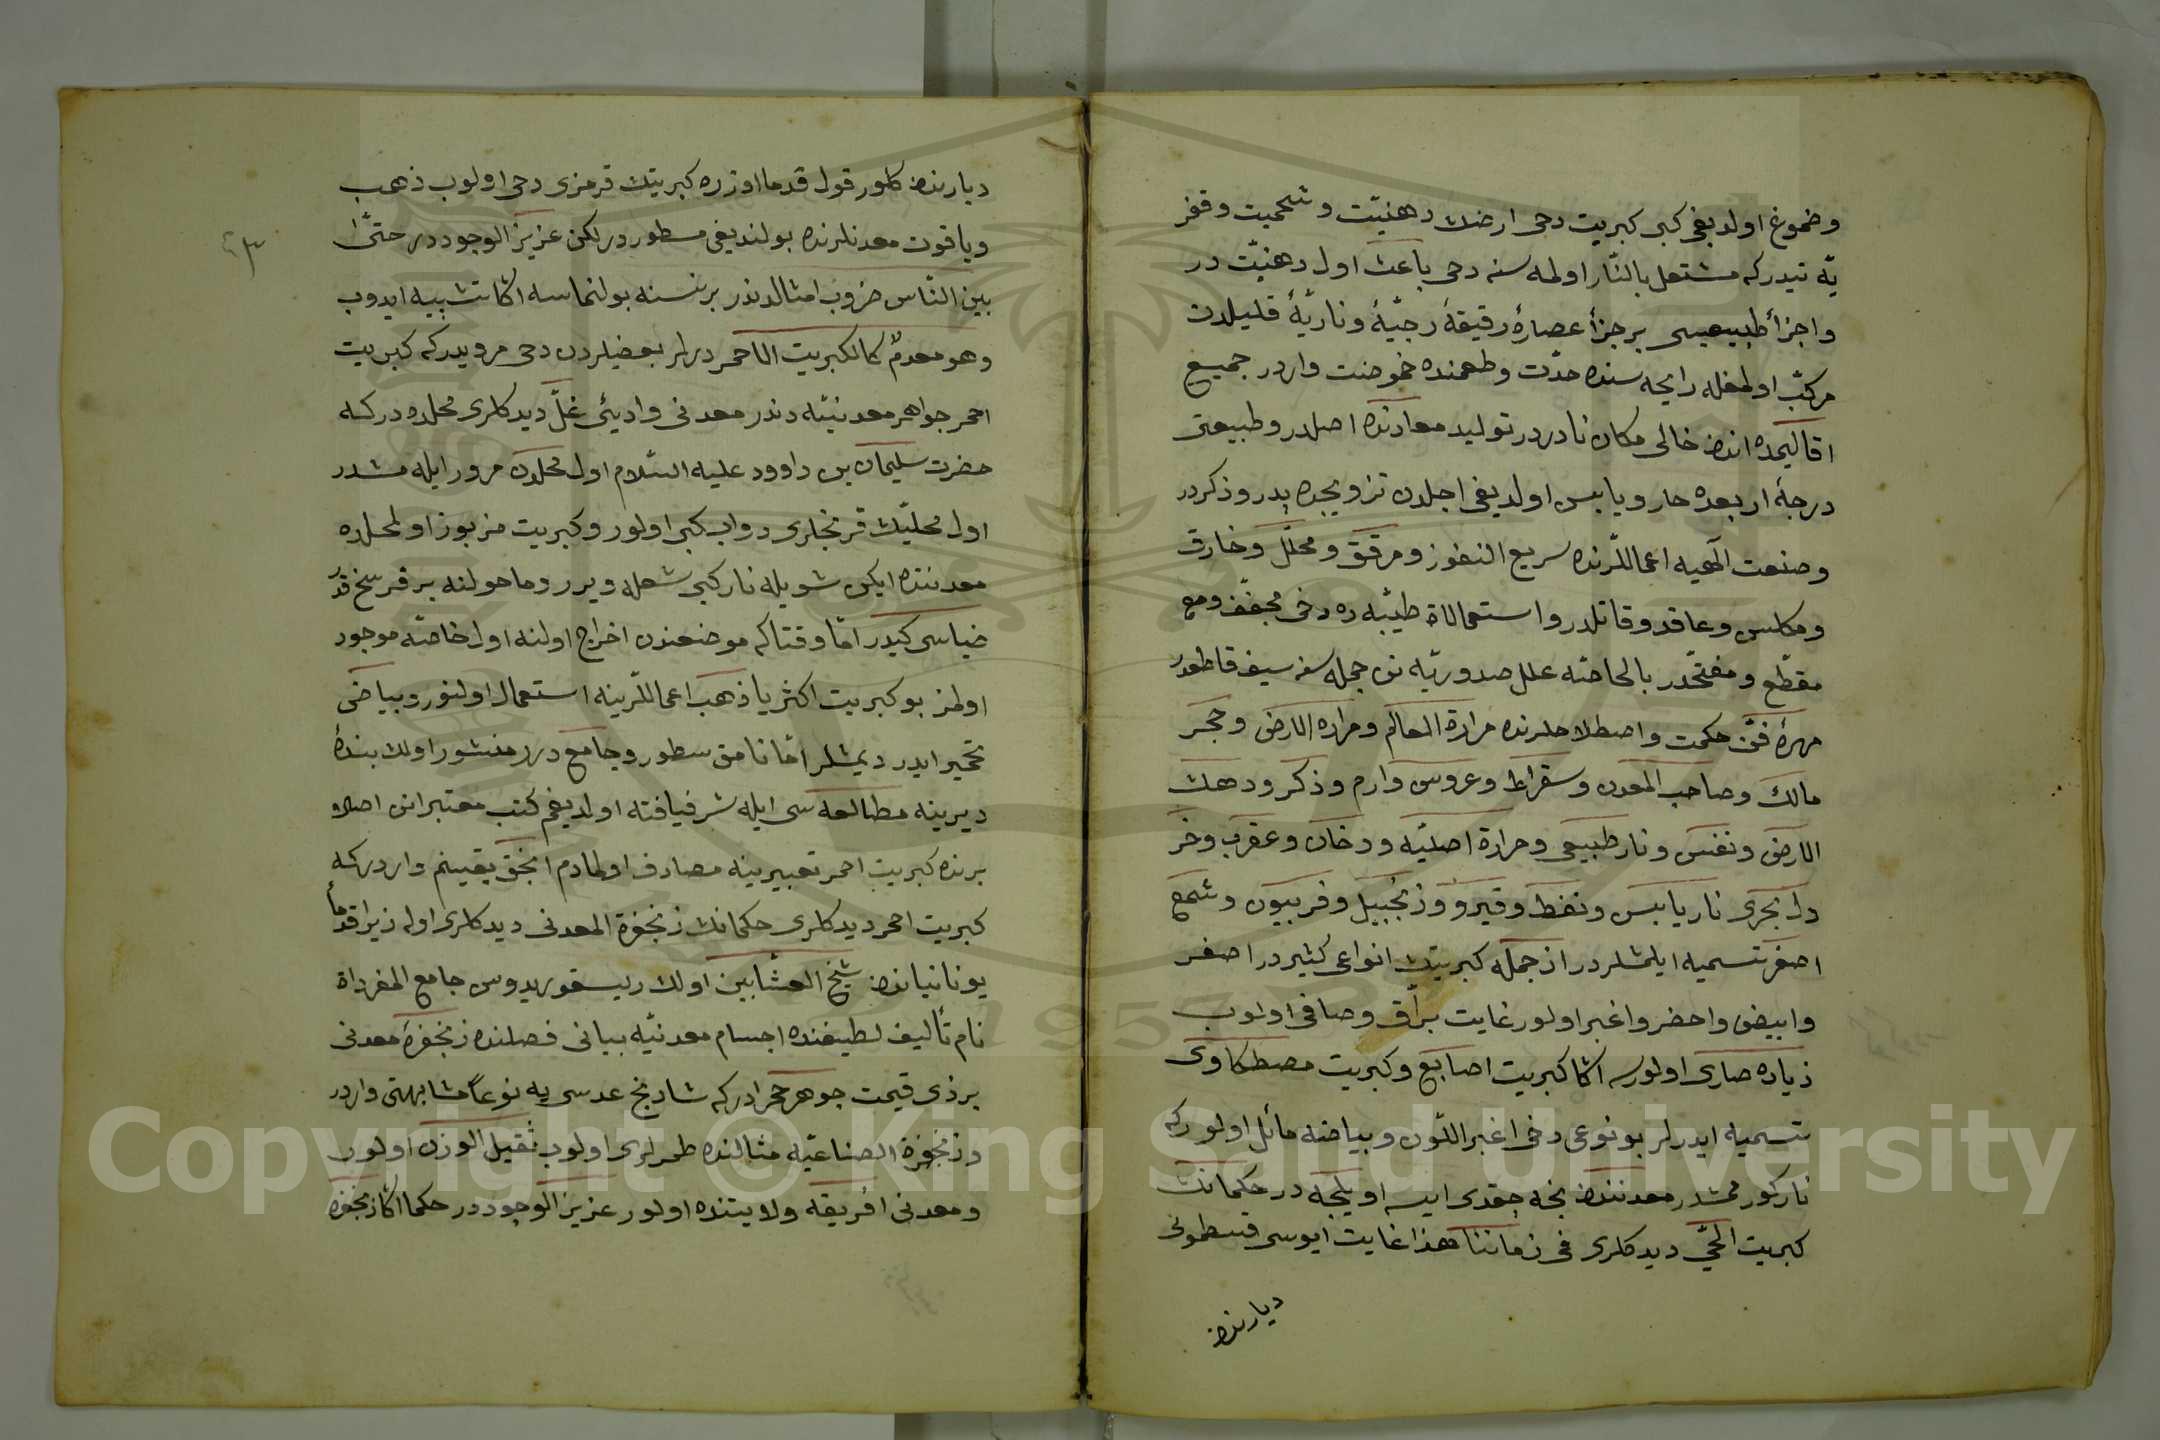 وضموغ اولديغى كبى كبريت دخى ارضك دهنيّت وشحميت وقفر
يّه تيدركه مشتعل بالنّار اولمه سنه دخى باعث اول دهنيّت در
واجزأ طبيعيسى برجزأ عصارۀ رقيقۀ رجيّۀ وناريّۀ قليلدن
مركّب اولمغله رايحه سنده حدّت وطعمنده حموضت واردر جميع
اقاليمده اندن خالى مكان نادردر توليد معادنده اصلدر وطبيعتى
درجۀ اربعده حار ويابس اولديغى اجلدن تزويجده پدر وذكردر
وصنعت الٓهيه اعماللرنده سريع النفوذ ومرقق ومحلّل وخارق
ومكلس وعاقد وقاتلدر واستعمالاة طيبّه ده دخى مجفّف ومع
مقطّع ومفتّحدر بالخاصّه علل صدوريّه نى جمله سنه سيف قاطعدر
مهرۀ فنّ حكمت واصطلاحلرنده مرارة العالم ومراره الارض وحجر
مالك وصاحب المعدن وسقراط وعروس وارم وذكر ودهنك
الارض ونفس ونار طبيعى وحرارة اصليّه ودخان وعقرب وخر
دل بحرى نار يابس ونفط وقير وزنجبيل وفربيون وشمع
اصفر تسميه ايلمشلردر ازجمله كبريتك انواعى كثيردر اصفر
وابيض واحضر واغبر اولور غايت برّاق وصافى اولوب
زياده صارى اولورسه اكا كبريت اصابع وكبريت مصطكاوى
تسميه ايدرلر بونوعى دخى اغبر اللّون وبياضه مأئل اولور كه
ناركورممشدر معدنندن نجه چقدى ايسه اويلجه در حكمانك
كبريت الحيّ ديدكلرى فى زماننا هذا غايت ايوسى قسطمونى
ديارندن
٤٣
ديارندن كلور قول قدما اوزره كبريتك قرمزى دخى اولوب ذهب
وياقوت معدنلرنده بولنديغى مسطوردر لكن عزيز الوجوددر حتّى
بين النّاس ضروب امثالدندر برنسنه بولنماسه اكا تشبيه ايدوب
وهو معدمٌ كالكبريت الاحمر ديرلر بعضيلردن دخى مرويدركه كبريت
احمر جواهر معدنيّه دندر معدنى وادئ غلّ ديدكلرى محلده دركه
حضرت سليمان بن داوود عليه السّلام اول محلدن مرور ايله مشدر
اول محليّك قرنجلرى دواب كبى اولور وكبريت مزبور اول محلده
معدننده ايكن شويله ناركبى شعله ويرر وماحولنه برفرسخ قدر
ضياسى كيدر امّا وقتاكه موضعندن اخراج اولنه اول خاصّه موجود
اولمز بوكبريت اكثريا ذهب اعماللرينه استعمال اولنور وبياضى
تحمير ايدر ديمشلر امّا نامق سطور وجامع درر منشور اولك بندۀ
ديرينه مطالعه سى ايله شرفيافته اولديغم كتب معتبرانى اصلا
برنده كبريت احمر تعبيرينه مصادف اولمادم انجق يقينم واردركه
كبريت احمر ديدكلرى حكمانك زنجفرة المعدنى ديدكلرى اوله زيرا قدمأ
يونانياندن شيخ العشّابين اولك ديسقوريدوس جامع المفرداة
نام تأليف لطيفنده اجسام معدنيّه بيانى فصلنده زنجفرۀ معدنى
برذى قيمت جوهر حمرادركه شادنج عدسى يه نوعا مشابهتى واردر
وزنجفرة الصناعيّه مثالنده طمرلرى اولوب ثقيل الوزن اولور
ومعدنى افريقه ولايتنده اولور عزيز الوجوددر حكما اكا زنجفره